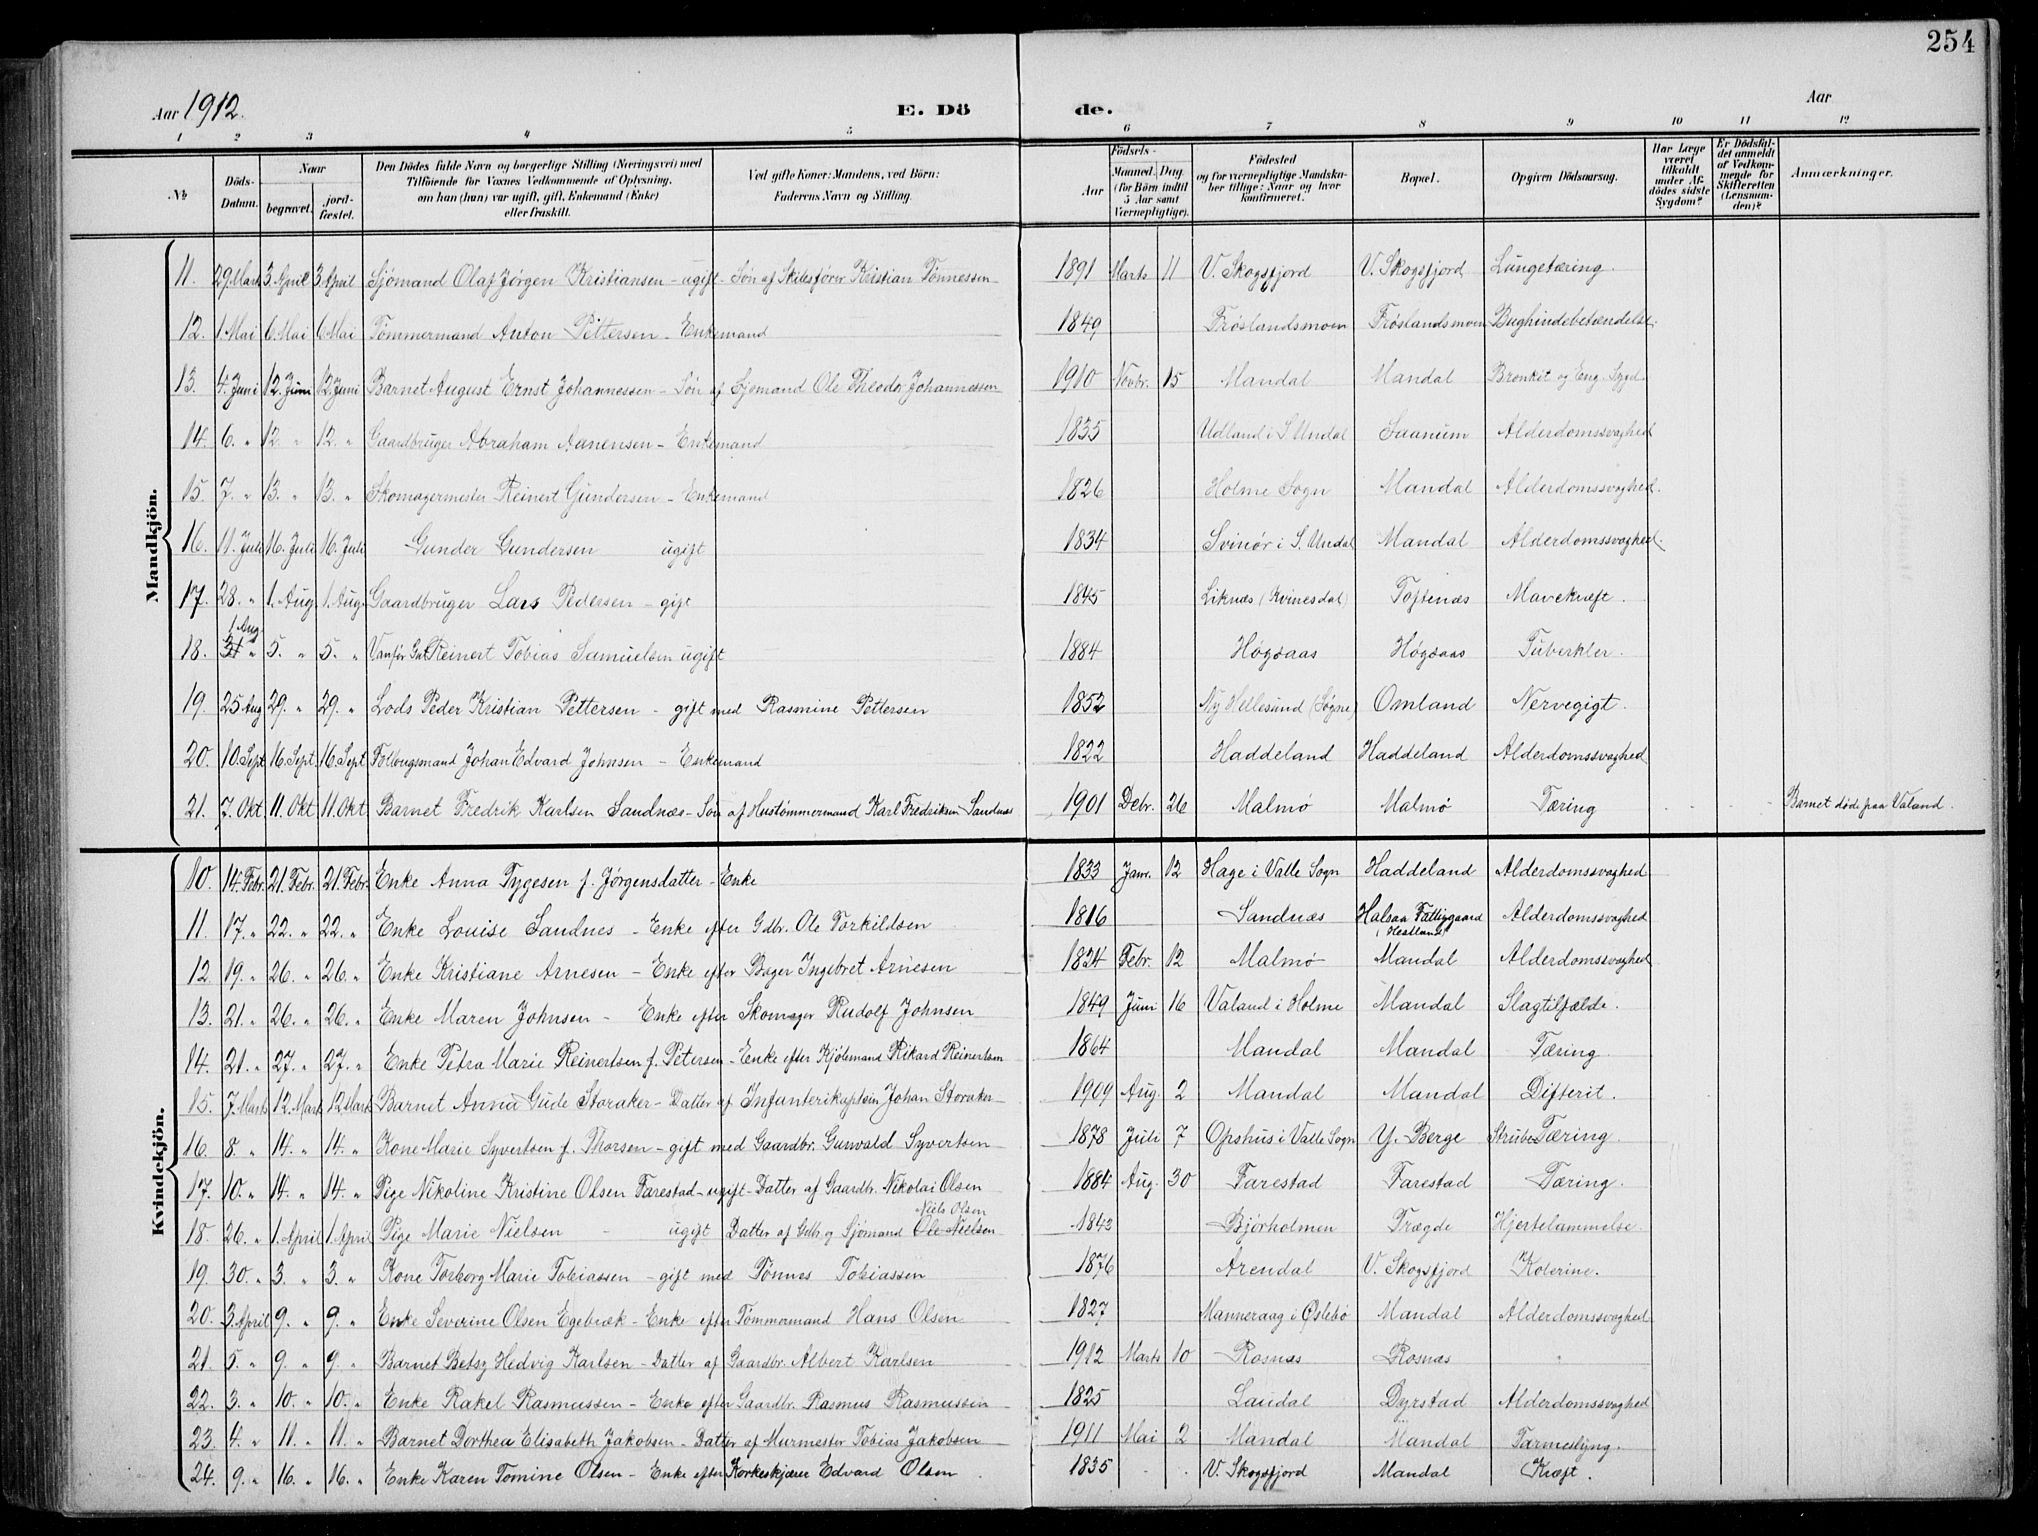 254
Aar 1912. E. Dö de. Aar
1 2 3 4 5 6 7 8 9 10 11 12
№ Döds-Datum. Naar begravet. jordfæstet. Den Dödes fulde Navn og borgerlige Stilling (Næringsvei) med Tilföiende for Voxnes Vedkommende af Oplysning, om han (hun) var ugift, gift, Enkemand (Enke) eller fraskilt. Ved gifte Koner: Mandens, ved Börn: Faderens Navn og Stilling. Födsels- Aar Maaned. Dag. (for Börn indtil 5 Aar samt Værnepligtige). Födested og for værnepligtige Mandskaber tillige: Naar og hvor konfirmeret. Bopæl. Opgiven Dödsaarsag. Har Læge været tilkaldt under Afdödes sidste Sygdom? Er Dödsfaldet anmeldt af Vedkommende for Skifteretten (Lensmanden)? Anmærkninger.
Mandkjön.
11. 29. Marts 3. April 3 April Sjømand Olaf Jørgen Kristiansen - ugift - Søn af Skibsfører Kristian Tønnessen 1891 Marts 11 V. Skogsfjord V. Skogsfjord Lungetæring.
12. 1. Mai 6. Mai 6 Mai Tømmermand Anton Pettersen - Enkemand 1849 Frøslandsmoen Frøslandsmoen Bughindebetændelse.
13. 4. Juni 12. Juni 12. Juni Barnet August Ernst Johannessen - Søn af Sjømand Ole Theodor Johannessen 1910 Novbr. 15 Mandal Mandal Bronkit og Eng. Syge.
14. 6. " 12. " 12. " Gaardbruger Abraham Aanensen - Enkemand 1835 Udland i S. Undal Saanum Alderdomssvaghed
15. 7. " 13. " 13. " Skomagermester Reinert Gundersen - Enkemand 1826 Holme Sogn Mandal Alderdomssvaghed.
16. 11. Juli 16. Juli 16. Juli Gunder Gundersen ugift 1834 Svinør i S. Undal Mandal Alderdomssvaghed.
17. 28. " 1. Aug. 1. Aug. Gaardbruger Lars Pedersen - gift 1845 Liknæs (Kvinesdal) Toftenæs Mavekræft.
1 Aug.
18. 31 " 5. " 5. " Vanfør Gut Reinert Tobias Samuelsen ugift 1884 Høgsaas Høgsaas Tuberkler.
19. 25 Aug 29. " 29. " Lods Peder Kristian Pettersen - gift med Rasmine Pettersen 1852 Ny Hellesund (Søgne) Omland Nervegigt.
20. 10. Sept 16. Sept. 16. Sept Folougsmand Johan Edvard Johnsen - Enkemand 1822 Haddeland Haddeland Alderdomssvaghed
21. 7. Okt 11. Okt 11. Okt Barnet Fredrik Karlsen Sandnæs - Søn af Hustømmermand Karl Fredriksen Sandnæs 1901 Debr. 26 Malmø Malmø Tæring Barnet døde paa Valand.
Kvindekjön.
10. 14. Febr. 21. Febr. 21. Febr. Enke Anna Tygesen f. Jørgensdatter - Enke 1833 Janr. 12 Hage i Valle Sogn Haddeland Alderdomssvaghed
11. 17. " 22. " 22. " Enke Louise Sandnes - Enke efter Gdbr. Ole Torkildsen 1816 Sandnæs Halsaa Fattiggaard (Hestland) Alderdomssvaghed
12. 19. " 26. " 26. " Enke Kristiane Arnesen - Enke efter Bager Ingebret Arnesen 1824 Febr. 12 Malmø Mandal Alderdomssvaghed
13. 21. " 26. " 26. " Enke Maren Johnsen - Enke efter Skomager Rudolf Johnsen 1849 Juni 16 Valand i Holme Mandal Slagtilfælde.
14. 21. " 27. " 27. " Enke Petra Marie Reinertsen f. Petersen - Enke efter Kjølemand Rikard Reinertsen 1864 Mandal Mandal Tæring.
15. 7. Marts 12. Marts 12 Marts Barnet Anna Gude Storaker - Datter af Infanterikaptein Johan Storaker 1909 Aug. 2 Mandal Mandal Difterit.
16 8. " 14. " 14. " Kone Marie Syvertsen f. Thorsen - gift med Gaardbr. Gunvald Syvertsen 1878 Juli 7 Opshus i Valle Sogn Y. Berge StrubeTæring.
17. 10. " 14. " 14. " Pige Nikoline Kristine Olsen Farestad - ugift - Datter af Gaardbr. Nikolai Olsen 1884 Aug. 30 Farestad Farestad Tæring.
Niels Olsen
18. 26. " 1. April 1. April Pige Marie Nielsen - ugift Datter af Gdbr. og Sjømand Ole Nielsen 1842 Bjørholmen Trægde Hjertelammelse.
19. 30. " 3. " 3. " Kone Torborg Marie Tobiassen - gift med Tønnes Tobiassen 1876 Arendal V. Skogsfjord Kolerine.
20. 3. April 9. " 9. " Enke Severine Olsen Egebæk - Enke efter Tømmermand Hans Olsen 1827 Manneraag i Øslebø Mandal Alderdomssvaghed
21. 5. " 9. " 9. " Barnet Betsy Hedvig Karlsen - Datter af Gaardbr. Albert Karlsen 1912 Marts 10 Rosnæs Rosnæs "
22. 3. " 10. " 10. " Enke Rakel Rasmussen - Enke efter Gaardbr. Rasmus Rasmussen 1825 Laudal Dyrstad Alderdomssvaghed
23. 4. " 11. " 11. " Barnet Dorthea Elisabeth Jakobsen - Datter af Murmester Tobias Jakobsen 1911 Mai 2 Mandal Mandal Tarmeslyng.
24. 9. " 16. " 16. " Enke Karen Tomine Olsen - Enke efter Korkeskjærer Edvard Olsen 1835 V. Skogsfjord Mandal Kræft.